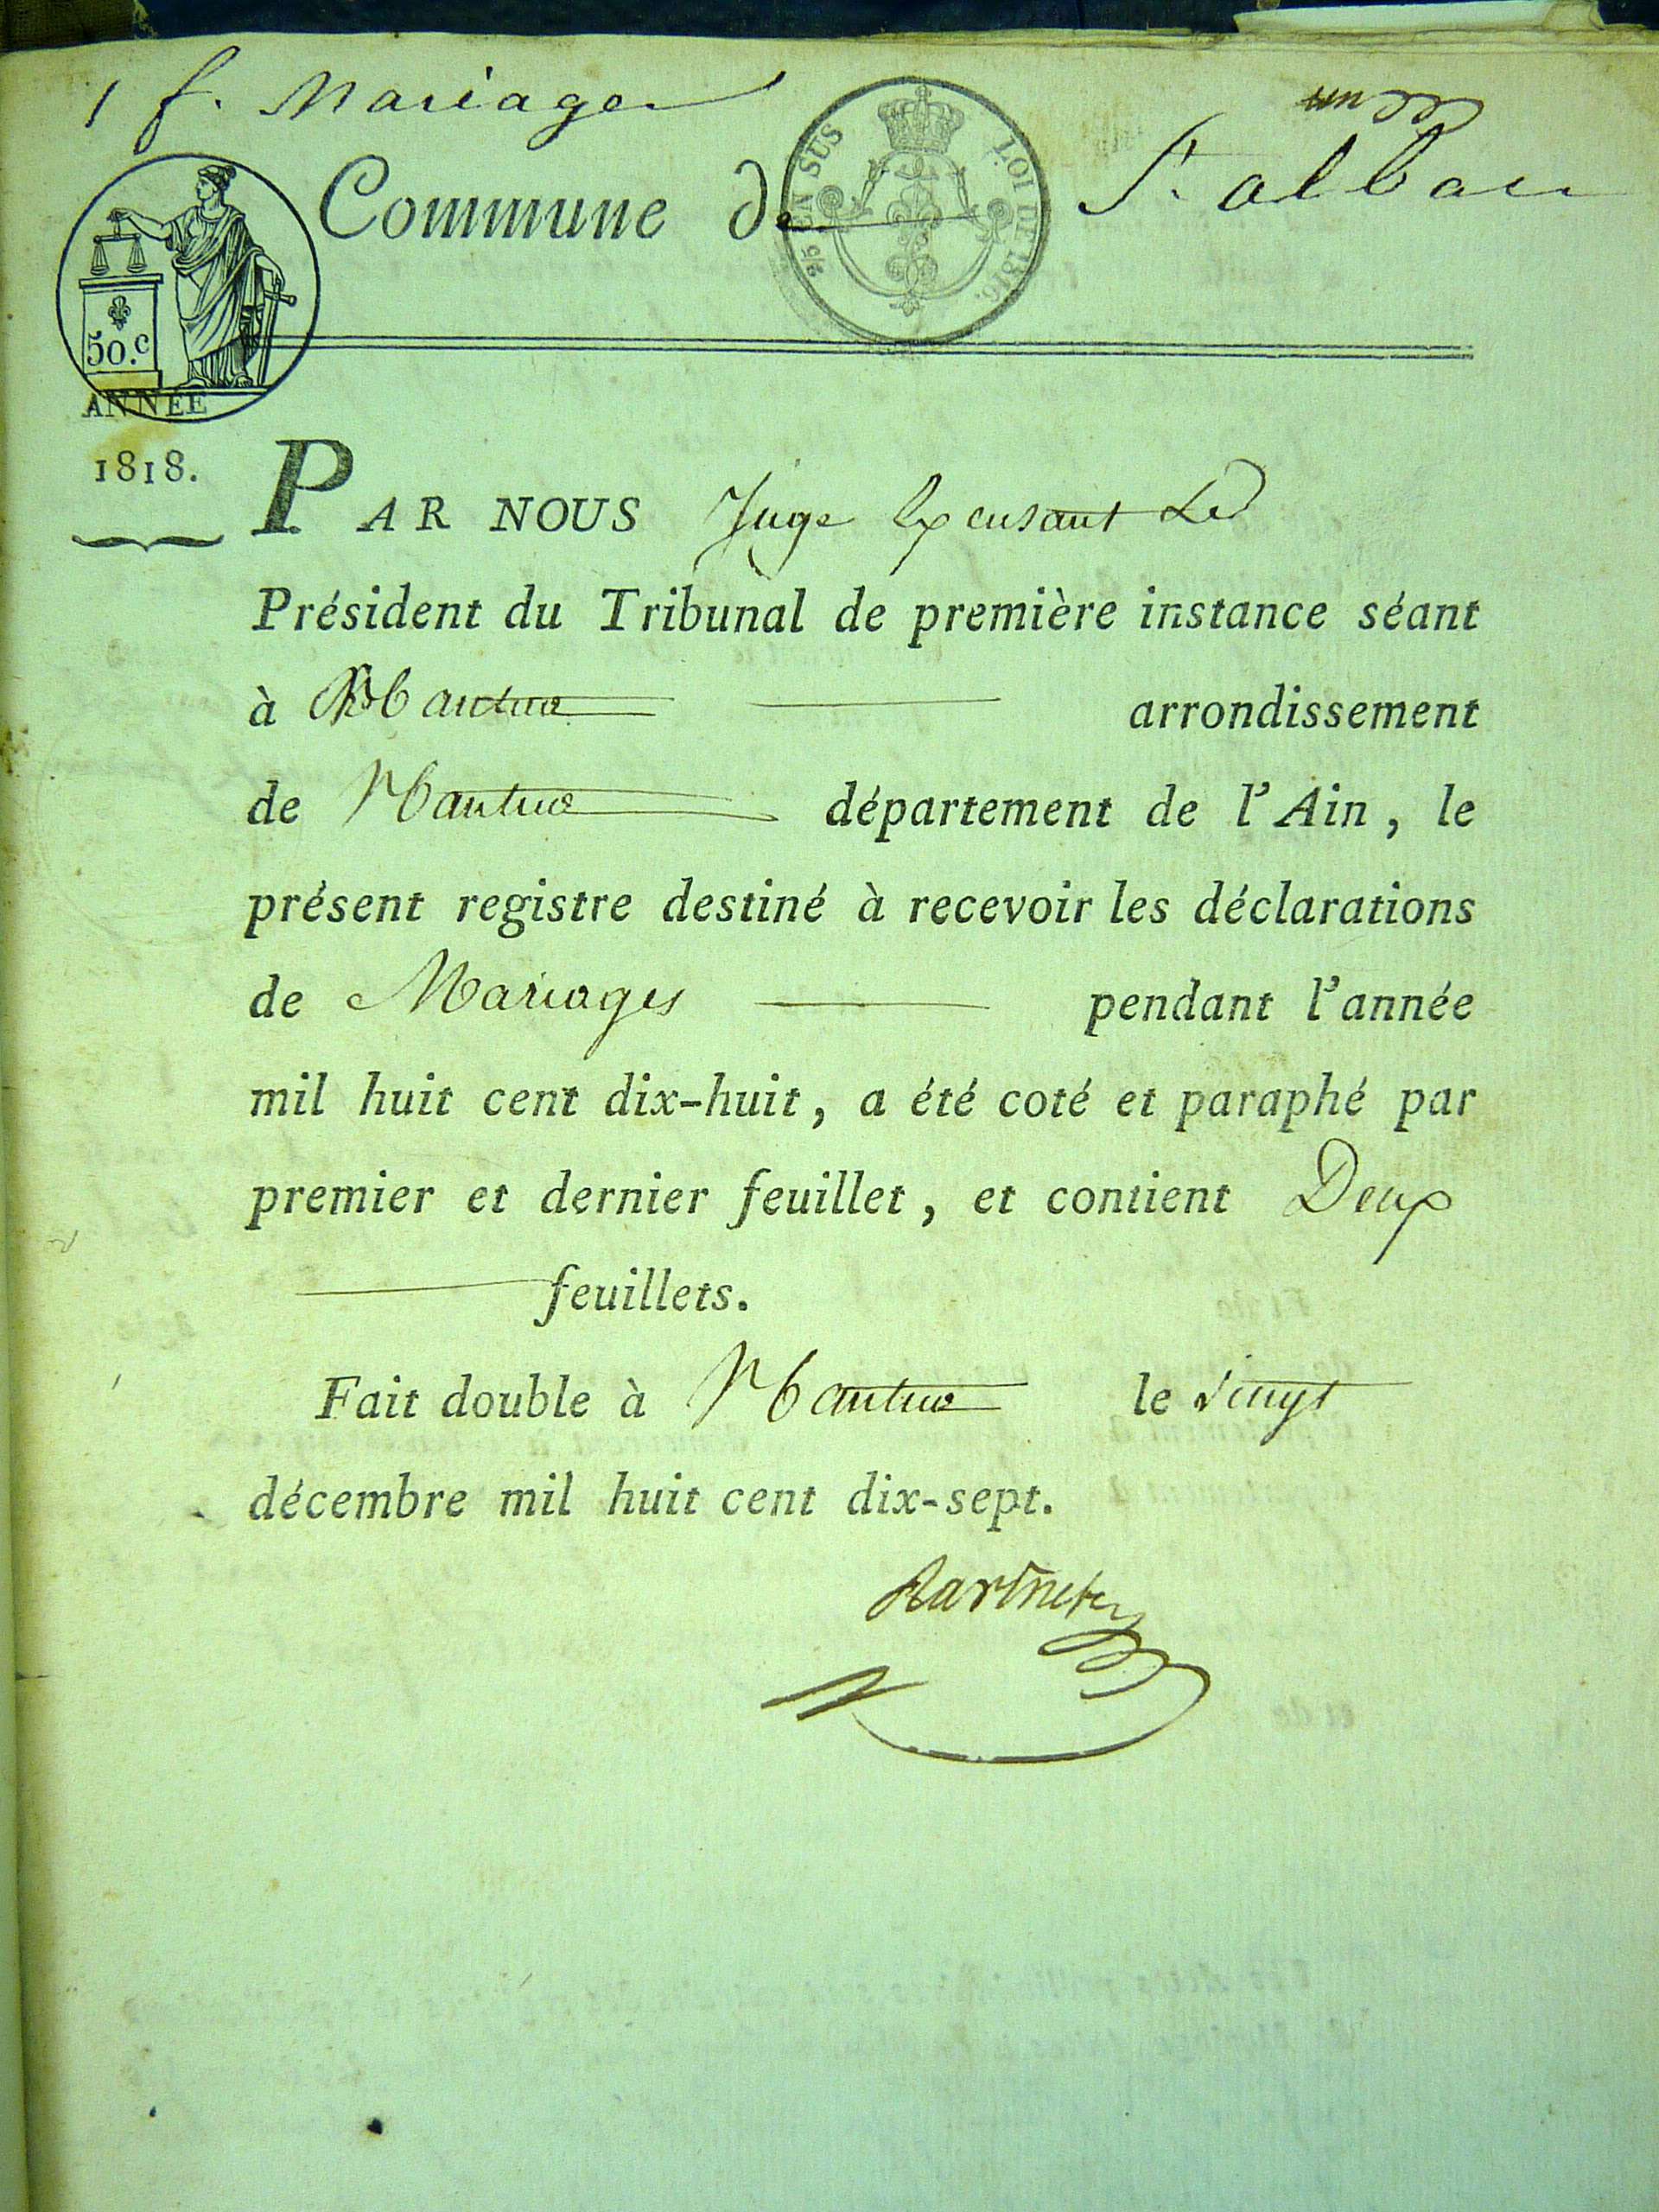 1 f. Mariages
un
Commune de St. alban
2/5 EN SUS LOI DE 1816.
50.c
ANNÉE
1818.
PAR NOUS Juge Excusant Le
Président du Tribunal de première instance séant
à Nantua arrondissement
de Nantua département de l'Ain, le
présent registre destiné à recevoir les déclarations
de Mariages pendant l'année
mil huit cent dix-huit, a été coté et paraphé par
premier et dernier feuillet, et contient Deux
feuillets.
Fait double à Nantua le vingt
décembre mil huit cent dix-sept.